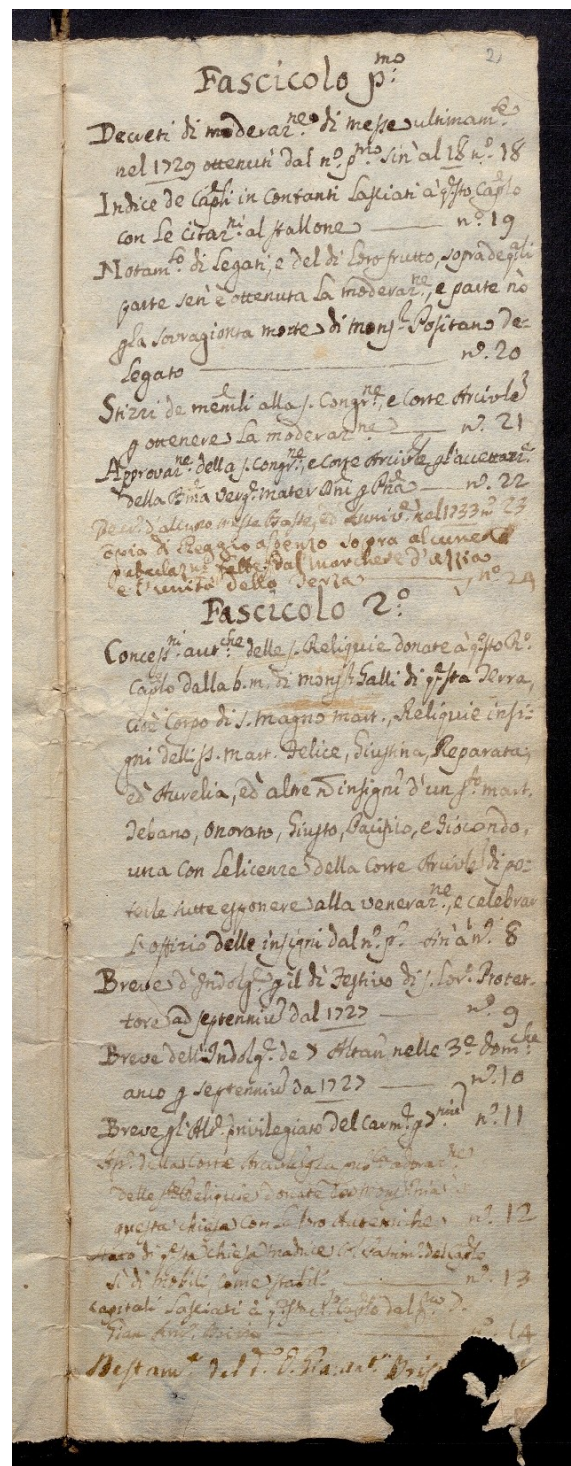 2
Fascicolo p.mo
Decreti di moderaz.ne di messe ultimam.te
nel 1729 ottenuti dal n.o p.mo sin'al 18 n.o 18
Indice de Cap.li in contanti lasciati à q.sto Cap.lo
con le citaz.ni al stallone n.o 19
Notam.to di Legati, e del di loro frutto, sopra de q.li
parte sen'è ottenuta la moderaz.ne, e parte nò
p la sovragionta morte di mons.r Positano De-
legato n.o 20
Stizzi de mem.li alla s. Congr.ne, e Corte Arcivle
p ottenere la moderaz.ne n.o 21
Approvaz.ne della s. Congr.ne, e Corte Arcivle p l'accettaz.e
della Verg.e mater Dni n.o 22
nel 1733 n.o 23
Copia di Reggio assenzo sopra alcune
dal Marchese d'
e l'unità della Terza n.o 24
Fascicolo 2.o
Concess.ni aut.che delle s. Reliquie donate à q.sto R.o
Cap.lo dalla b.m. di mons.r Galli di q.sta Terra,
cioè Corpo di s. Magno mart., Reliquie insi-
gni delli ss. mart. Felice, Giustina, Reparata,
ed Aurelia, ed altre nò insigni d'un s.to mart.
Onorato, Giusto, e Giocondo,
una con le licenze della Corte Arcivle di po-
terle tutte esponere alla veneraz.ne, e celebrar
l'offizio delle insigni dal n.o p.o sin'à n.o 8
Breve d'Indolg.e p il dì Festivo di s. Lor.o Protet-
tore ad septenniu dal 1727 n.o 9
Breve dell'Indolg.e de 7 Altari nelle 3.e dom.che
anco p septenniu da 1727 n.o 10
Breve p l'Alt.e privilegiato del Carm.e p 7.niu n.o 11
della Corte
delle s. Reliquie donate da mons.
questa chiesa con le loro Autentiche n.o 12
Stato di q.sta chiesa madrice del Cap.lo
sì di mobili, come stabili n.o 13
Capitali lasciati à q.sto Cap.lo dal D.
n.o 14
Testam.to del D.